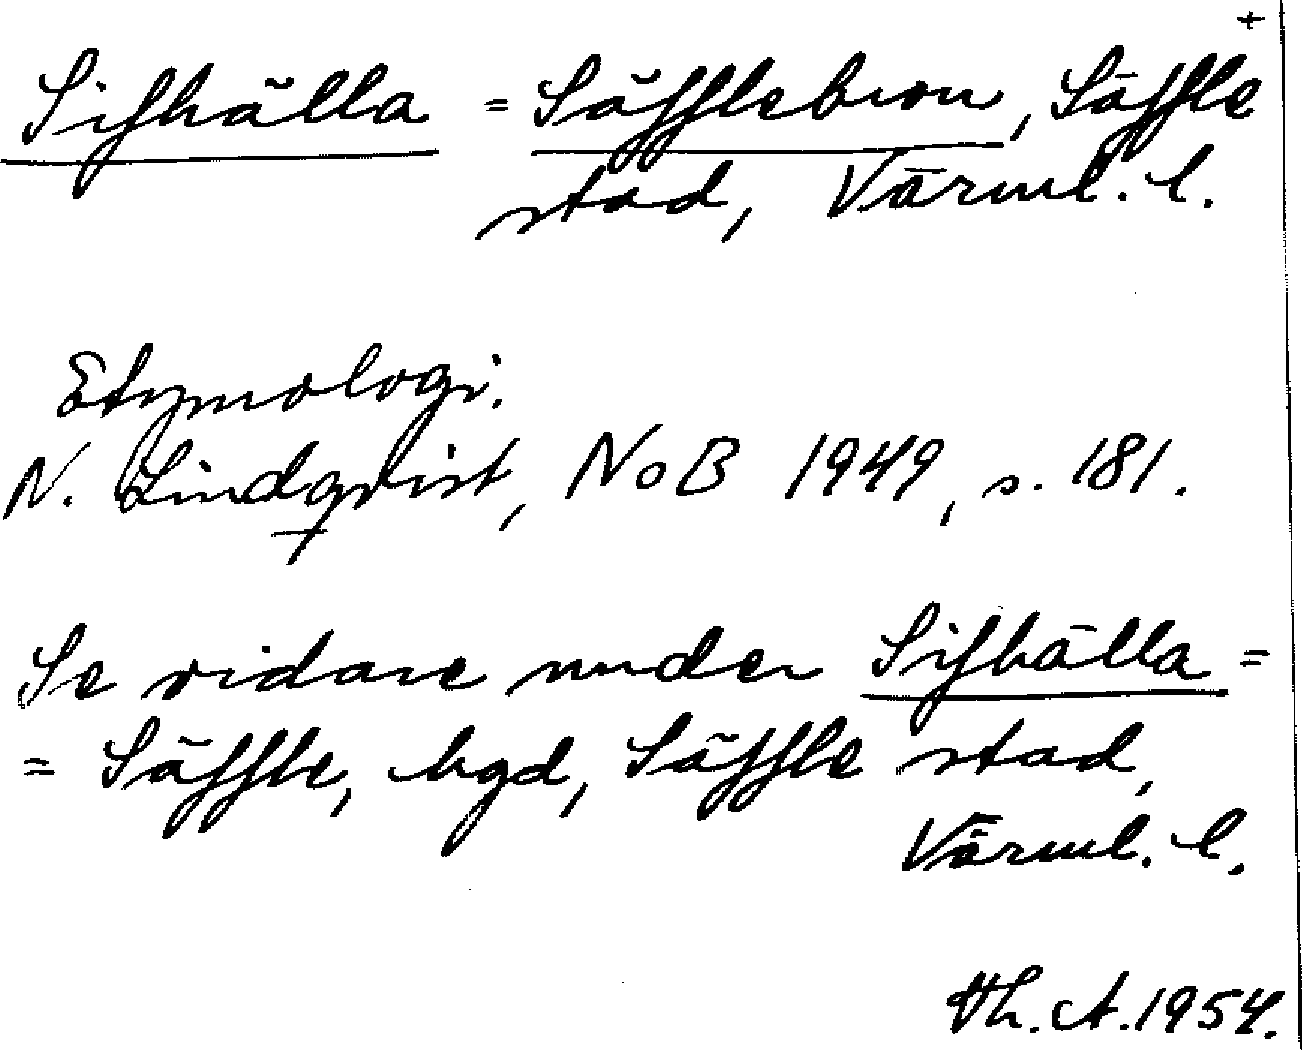 +
Sifhälla = Säfflebron, Säffle
stad, Värml. l.
Etymologi.
N. Lindqvist, NoB 1949, s. 181.
Se vidare under Sifhälla =
= Säffle, bgd, Säffle stad,
Värml. l.
Th. A. 1954.